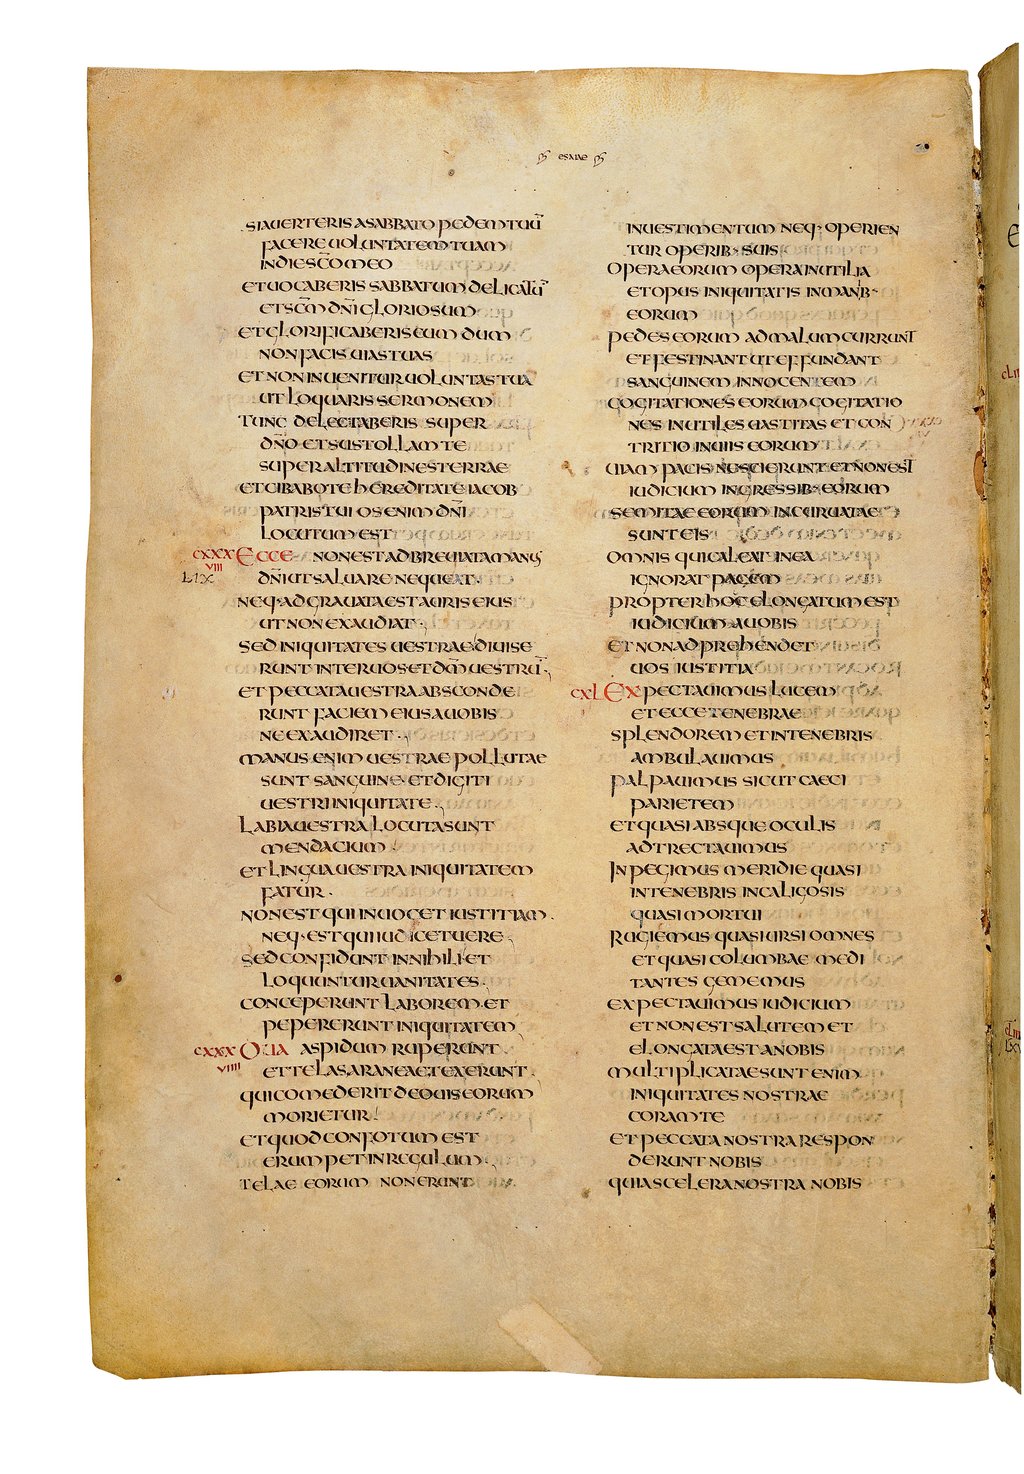 ESAIAE
SI AUERTERIS A SABBATO PEDEM TUŪ
FACERE UOLUNTATEM TUAM
IN DIE SC̄O MEO
ET UOCABERIS SABBATUM DELICATŪ
ET SC̄M DN̄I GLORIOSUM
ET GLORIFICABERIS EUM DUM
NON FACIS UIAS TUAS
ET NON INUENITUR UOLUNTAS TUA
UT LOQUARIS SERMONEM
TUNC DELECTABERIS SUPER
DN̄O ET SUSTOLLAM TE
SUPER ALTITUDINES TERRAE
ET CIBABO TE HEREDITATE IACOB
PATRIS TUI OS ENIM DN̄I
LOCUTUM EST
CXXX ECCE NON EST ADBREUIATA MANUS
VIIII
LIX DN̄I UT SALUARE NEQUEAT
NEQ· ADGRAUATA EST AURIS EIUS
UT NON EXAUDIAT
SED INIQUITATES UESTRAE DIUISE
RUNT INTER UOS ET DM̄ UESTRŪ
ET PECCATA UESTRA ABSCONDE
RUNT FACIEM EIUS A UOBIS
NE EXAUDIRET
MANUS ENIM UESTRAE POLLUTAE
SUNT SANGUINE ET DIGITI
UESTRI INIQUITATE
LABIA UESTRA LOCUTA SUNT
MENDACIUM
ET LINGUA UESTRA INIQUITATEM
FATUR
NON EST QUI INUOCET IUSTITIAM
NEQ· EST QUI IUDICET UERE
SED CONFIDUNT IN NIHILI ET
LOQUUNTUR UANITATES
CONCEPERUNT LABOREM ET
PEPERERUNT INIQUITATEM
CXXX OUA ASPIDUM RUPERUNT
VIIII ET TELAS ARANEAE TEXERUNT
QUI COMEDERIT DE OUIS EORUM
MORIETUR
ET QUOD CONFOTUM EST
ERUMPET IN REGULUM
TELAE EORUM NON ERUNT
IN UESTIMENTUM NEQ· OPERIEN
TUR OPERIB· SUIS
OPERA EORUM OPERA INUTILIA
ET OPUS INIQUITATIS IN MANIB·
EORUM
PEDES EORUM AD MALUM CURRUNT
ET FESTINANT UT EFFUNDANT
SANGUINEM INNOCENTEM
COGITATIONES EORUM COGITATIO
NES INUTILES UASTITAS ET CON
TRITIO IN UIIS EORUM
UIAM PACIS NESCIERUNT ET NON EST
IUDICIUM IN GRESSIB· EORUM
SEMITAE EORUM INCURUATAE
SUNT EIS
OMNIS QUI CALCAT IN EA
IGNORAT PACEM
PROPTER HOC ELONGATUM EST
IUDICIUM A UOBIS
ET NON ADPREHENDET
UOS IUSTITIA
CXL EXPECTAUIMUS LUCEM
ET ECCE TENEBRAE
SPLENDOREM ET IN TENEBRIS
AMBULAUIMUS
PALPAUIMUS SICUT CAECI
PARIETEM
ET QUASI ABSQUE OCULIS
ADTRECTAUIMUS
INPEGIMUS MERIDIE QUASI
IN TENEBRIS IN CALIGOSIS
QUASI MORTUI
RUGIEMUS QUASI URSI OMNES
ET QUASI COLUMBAE MEDI
TANTES GEMEMUS
EXPECTAUIMUS IUDICIUM
ET NON EST SALUTEM ET
ELONGATA EST A NOBIS
MULTIPLICATAE SUNT ENIM
INIQUITATES NOSTRAE
CORAM TE
ET PECCATA NOSTRA RESPON
DERUNT NOBIS
QUIA SCELERA NOSTRA NOBIS